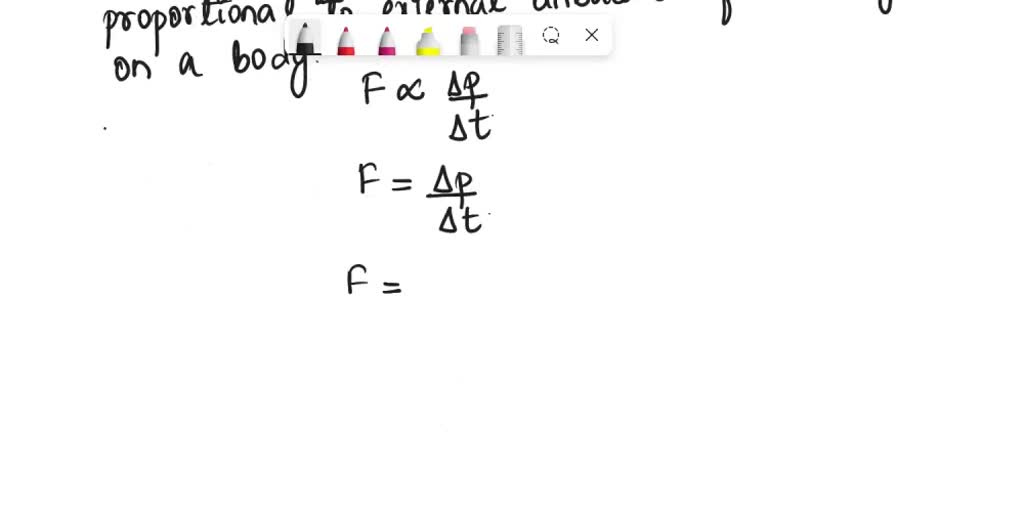 proportional to external
on a body.
F ∝ Δp/Δt
F = Δp/Δt
F =